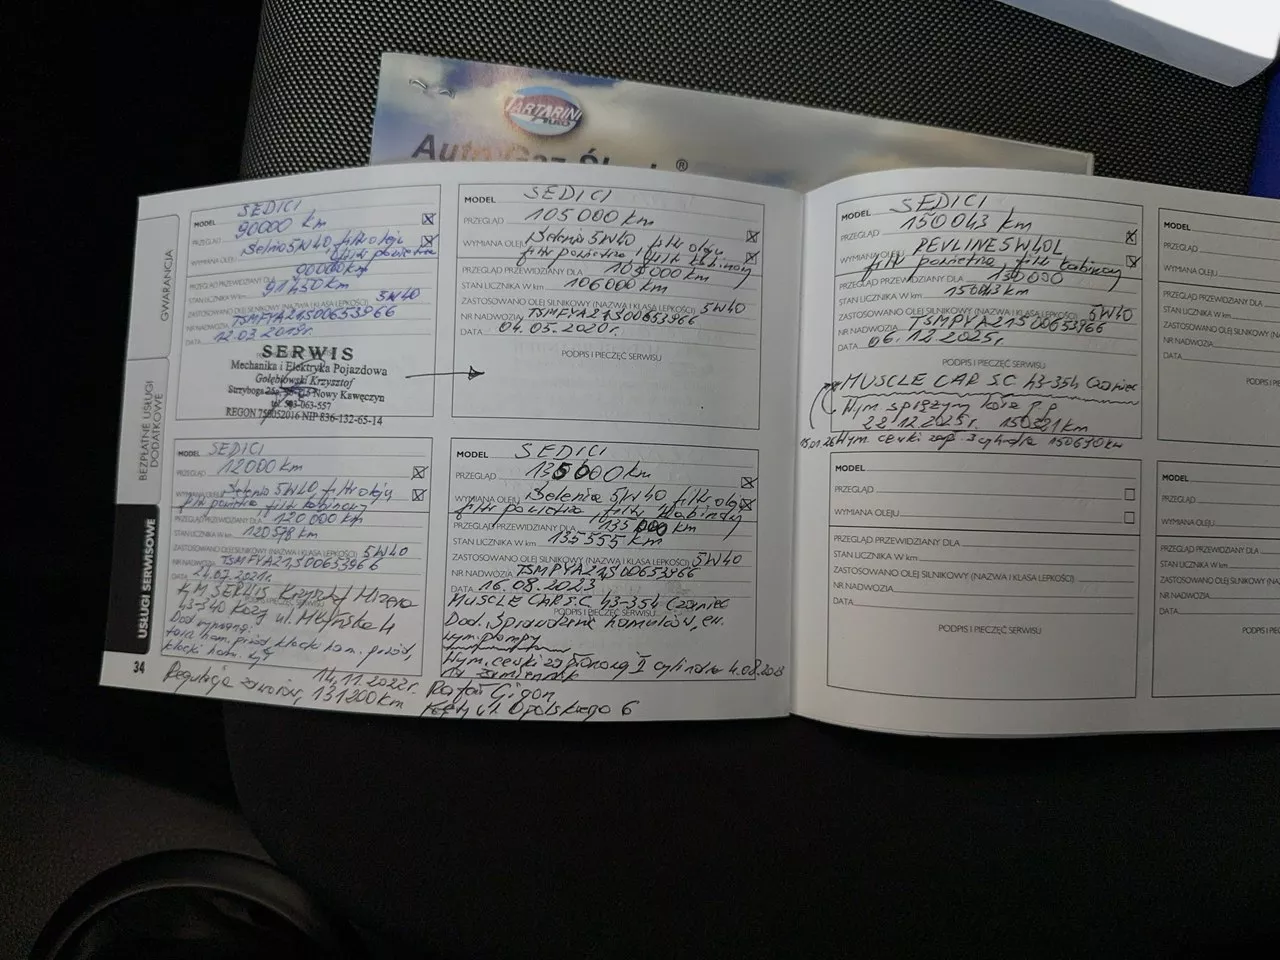 TARTARINI
AUTO
Auto Gaz Śląsk®
GWARANCJA
BEZPŁATNE USŁUGI
DODATKOWE
USŁUGI SERWISOWE
34
MODEL SEDICI
PRZEGLĄD 90000 km
WYMIANA OLEJU Selenia 5W40 filtr oleju
filtr powietrza
PRZEGLĄD PRZEWIDZIANY DLA 90000 km
STAN LICZNIKA W km 91450 km
ZASTOSOWANO OLEJ SILNIKOWY (NAZWA I KLASA LEPKOŚCI) 5W40
NR NADWOZIA TSMFYA21S00653966
DATA 12.03.2019r.
SERWIS
Mechanika i Elektryka Pojazdowa
Gołębiowski Krzysztof
Nowy Kawęczyn
REGON 750052016 NIP 836-132-65-14
MODEL SEDICI
PRZEGLĄD 105000 km
WYMIANA OLEJU Selenia 5W40 filtr oleju
filtr powietrza filtr kabinowy
PRZEGLĄD PRZEWIDZIANY DLA 105000 km
STAN LICZNIKA W km 106000 km
ZASTOSOWANO OLEJ SILNIKOWY (NAZWA I KLASA LEPKOŚCI) 5W40
NR NADWOZIA TSMFYA21S00653966
DATA 04.05.2020r.
PODPIS I PIECZĘĆ SERWISU
MODEL SEDICI
PRZEGLĄD 12000 km
WYMIANA OLEJU Selenia 5W40 filtr oleju
filtr powietrza filtr kabinowy
PRZEGLĄD PRZEWIDZIANY DLA 120000 km
STAN LICZNIKA W km 120578 km
ZASTOSOWANO OLEJ SILNIKOWY (NAZWA I KLASA LEPKOŚCI) 5W40
NR NADWOZIA TSMFYA21S00653966
DATA 21.07.2021r.
SERWIS Krzysztof
43-340 Kozy ul. Młyńska 4
Dod. wymiana:
ham. przód, klocki ham. przód,
klocki ham. tył
Regulacja zaworów, 14.11.2022r.
131200 km
MODEL SEDICI
PRZEGLĄD 135000 km
WYMIANA OLEJU Selenia 5W40 filtr oleju
filtr powietrza, filtr kabinowy
PRZEGLĄD PRZEWIDZIANY DLA 135000 km
STAN LICZNIKA W km 135555 km
ZASTOSOWANO OLEJ SILNIKOWY (NAZWA I KLASA LEPKOŚCI) 5W40
NR NADWOZIA TSMFYA21S00653966
DATA 16.08.2023
MUSCLE CAR S.C 43-354 Czaniec
PODPIS I PIECZĘĆ SERWISU
Dod. Sprawdzenie hamulców, ew.
wym. pompy
Wym. cewki zapłonowej II cylindra 4.08.2023
Rafał Gigon
Kęty ul. Opolskiego 6
MODEL SEDICI
PRZEGLĄD 150043 km
WYMIANA OLEJU REVLINE 5W40L
filtr powietrza, filtr kabinowy
PRZEGLĄD PRZEWIDZIANY DLA 150000
STAN LICZNIKA W km 150043 km
ZASTOSOWANO OLEJ SILNIKOWY (NAZWA I KLASA LEPKOŚCI) 5W40
NR NADWOZIA TSMFYA21S00653966
DATA 06.12.2025r.
PODPIS I PIECZĘĆ SERWISU
MUSCLE CAR S.C 43-354 Czaniec
Wym sprężyn P.P
22.12.2025r. 150321 km
15.01.26 Wym. cewki zapł 3 cylindra 150630 km
MODEL
PRZEGLĄD
WYMIANA OLEJU
PRZEGLĄD PRZEWIDZIANY DLA
STAN LICZNIKA W km
ZASTOSOWANO OLEJ SILNIKOWY (NAZWA I KLASA LEPKOŚCI)
NR NADWOZIA
DATA
PODPIS I PIECZĘĆ SERWISU
MODEL
PRZEGLĄD
WYMIANA OLEJU
PRZEGLĄD PRZEWIDZIANY DLA
STAN LICZNIKA W km
ZASTOSOWANO OLEJ SILNIKOWY
NR NADWOZIA
DATA
PODPIS I
MODEL
PRZEGLĄD
WYMIANA OLEJU
PRZEGLĄD PRZEWIDZIANY
STAN LICZNIKA W km
ZASTOSOWANO OLEJ SILNIKOWY
NR NADWOZIA
DATA
PODPIS I